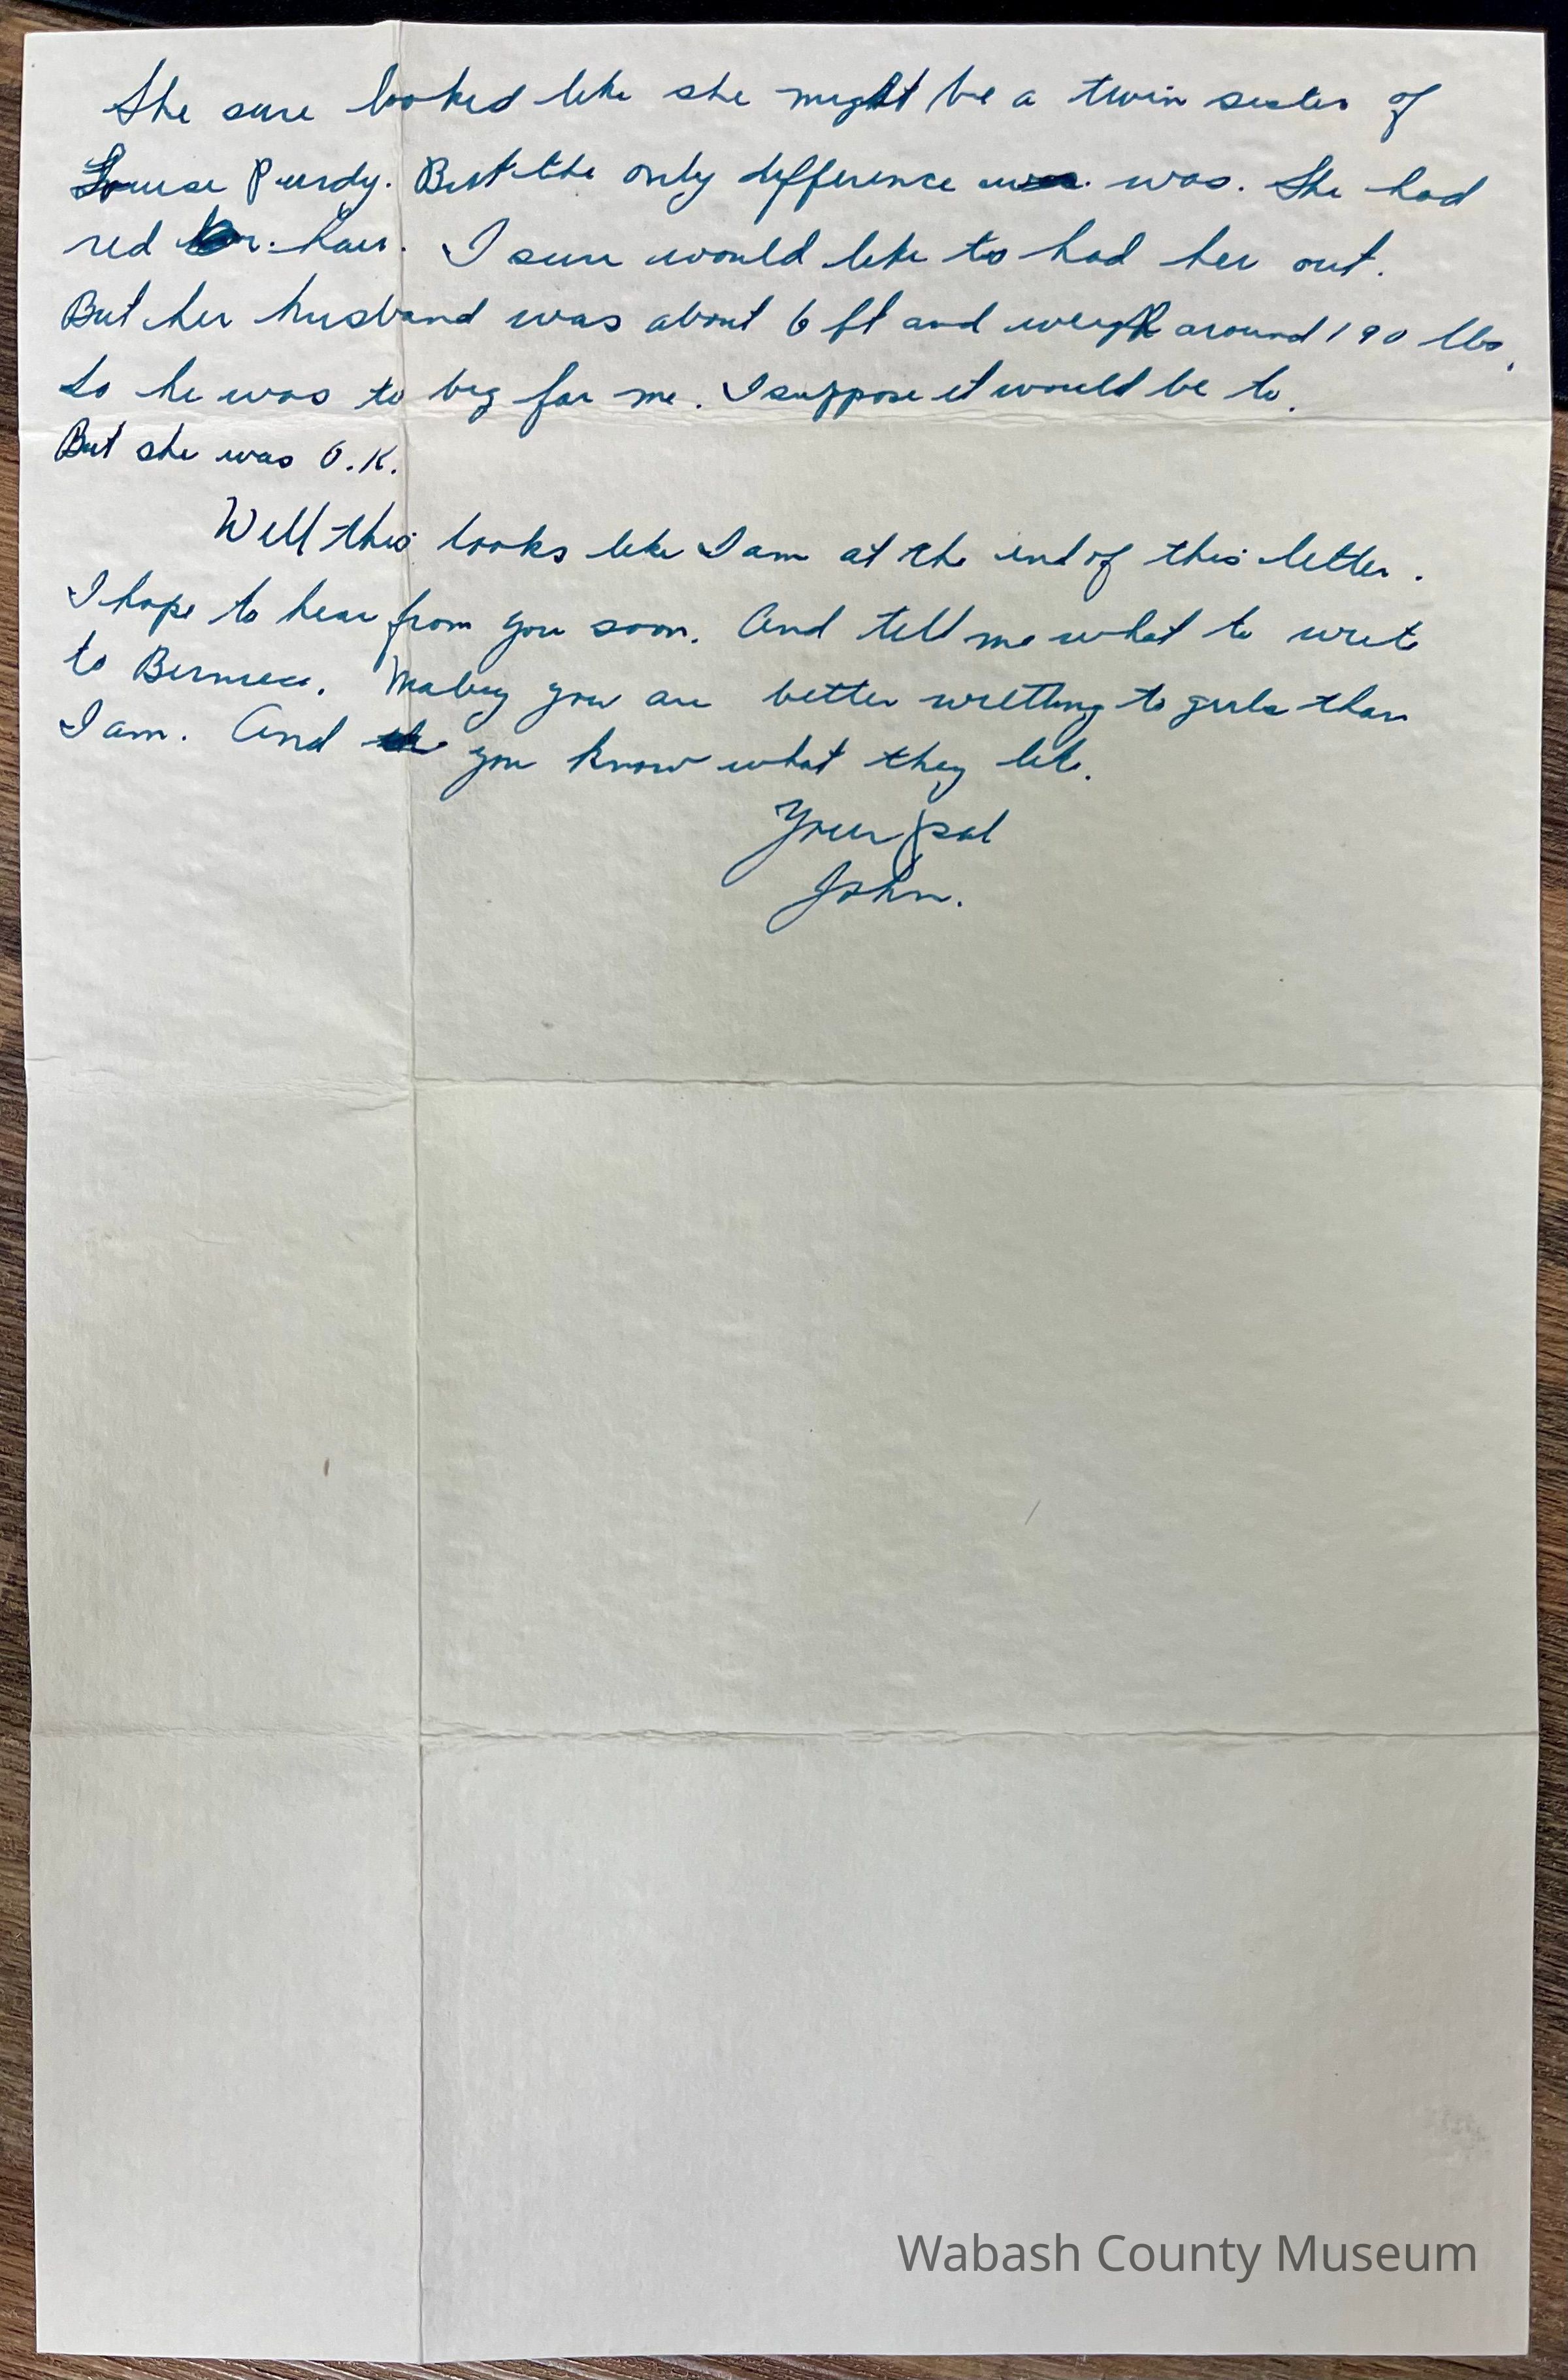 She sure looked like she might be a twin sister of
Louise Purdy. But the only difference was. She had
red hair. I sure would like to had her out.
But her husband was about 6 ft and weigh around 190 lbs.
So he was to big for me. I suppose it would be to.
But she was O.K.
Well this looks like I am at the end of this letter.
I hope to hear from you soon. And tell me what to write
to Bernice. Mabey you are better writting to girls than
I am. And you know what they like.
Your pal
John.
Wabash County Museum